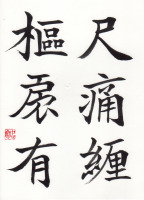 尺痛纏
樞裠有